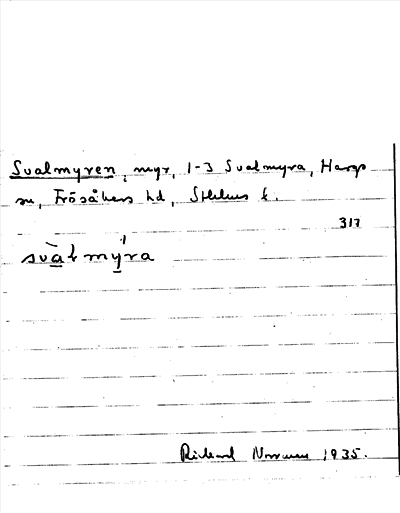 Svalmyren, myr, 1-3 Svalmyra, Hargs
sn, Frösåkers hd, Sthlms l.
317
svàlmýra
Rickard Norman 1935.